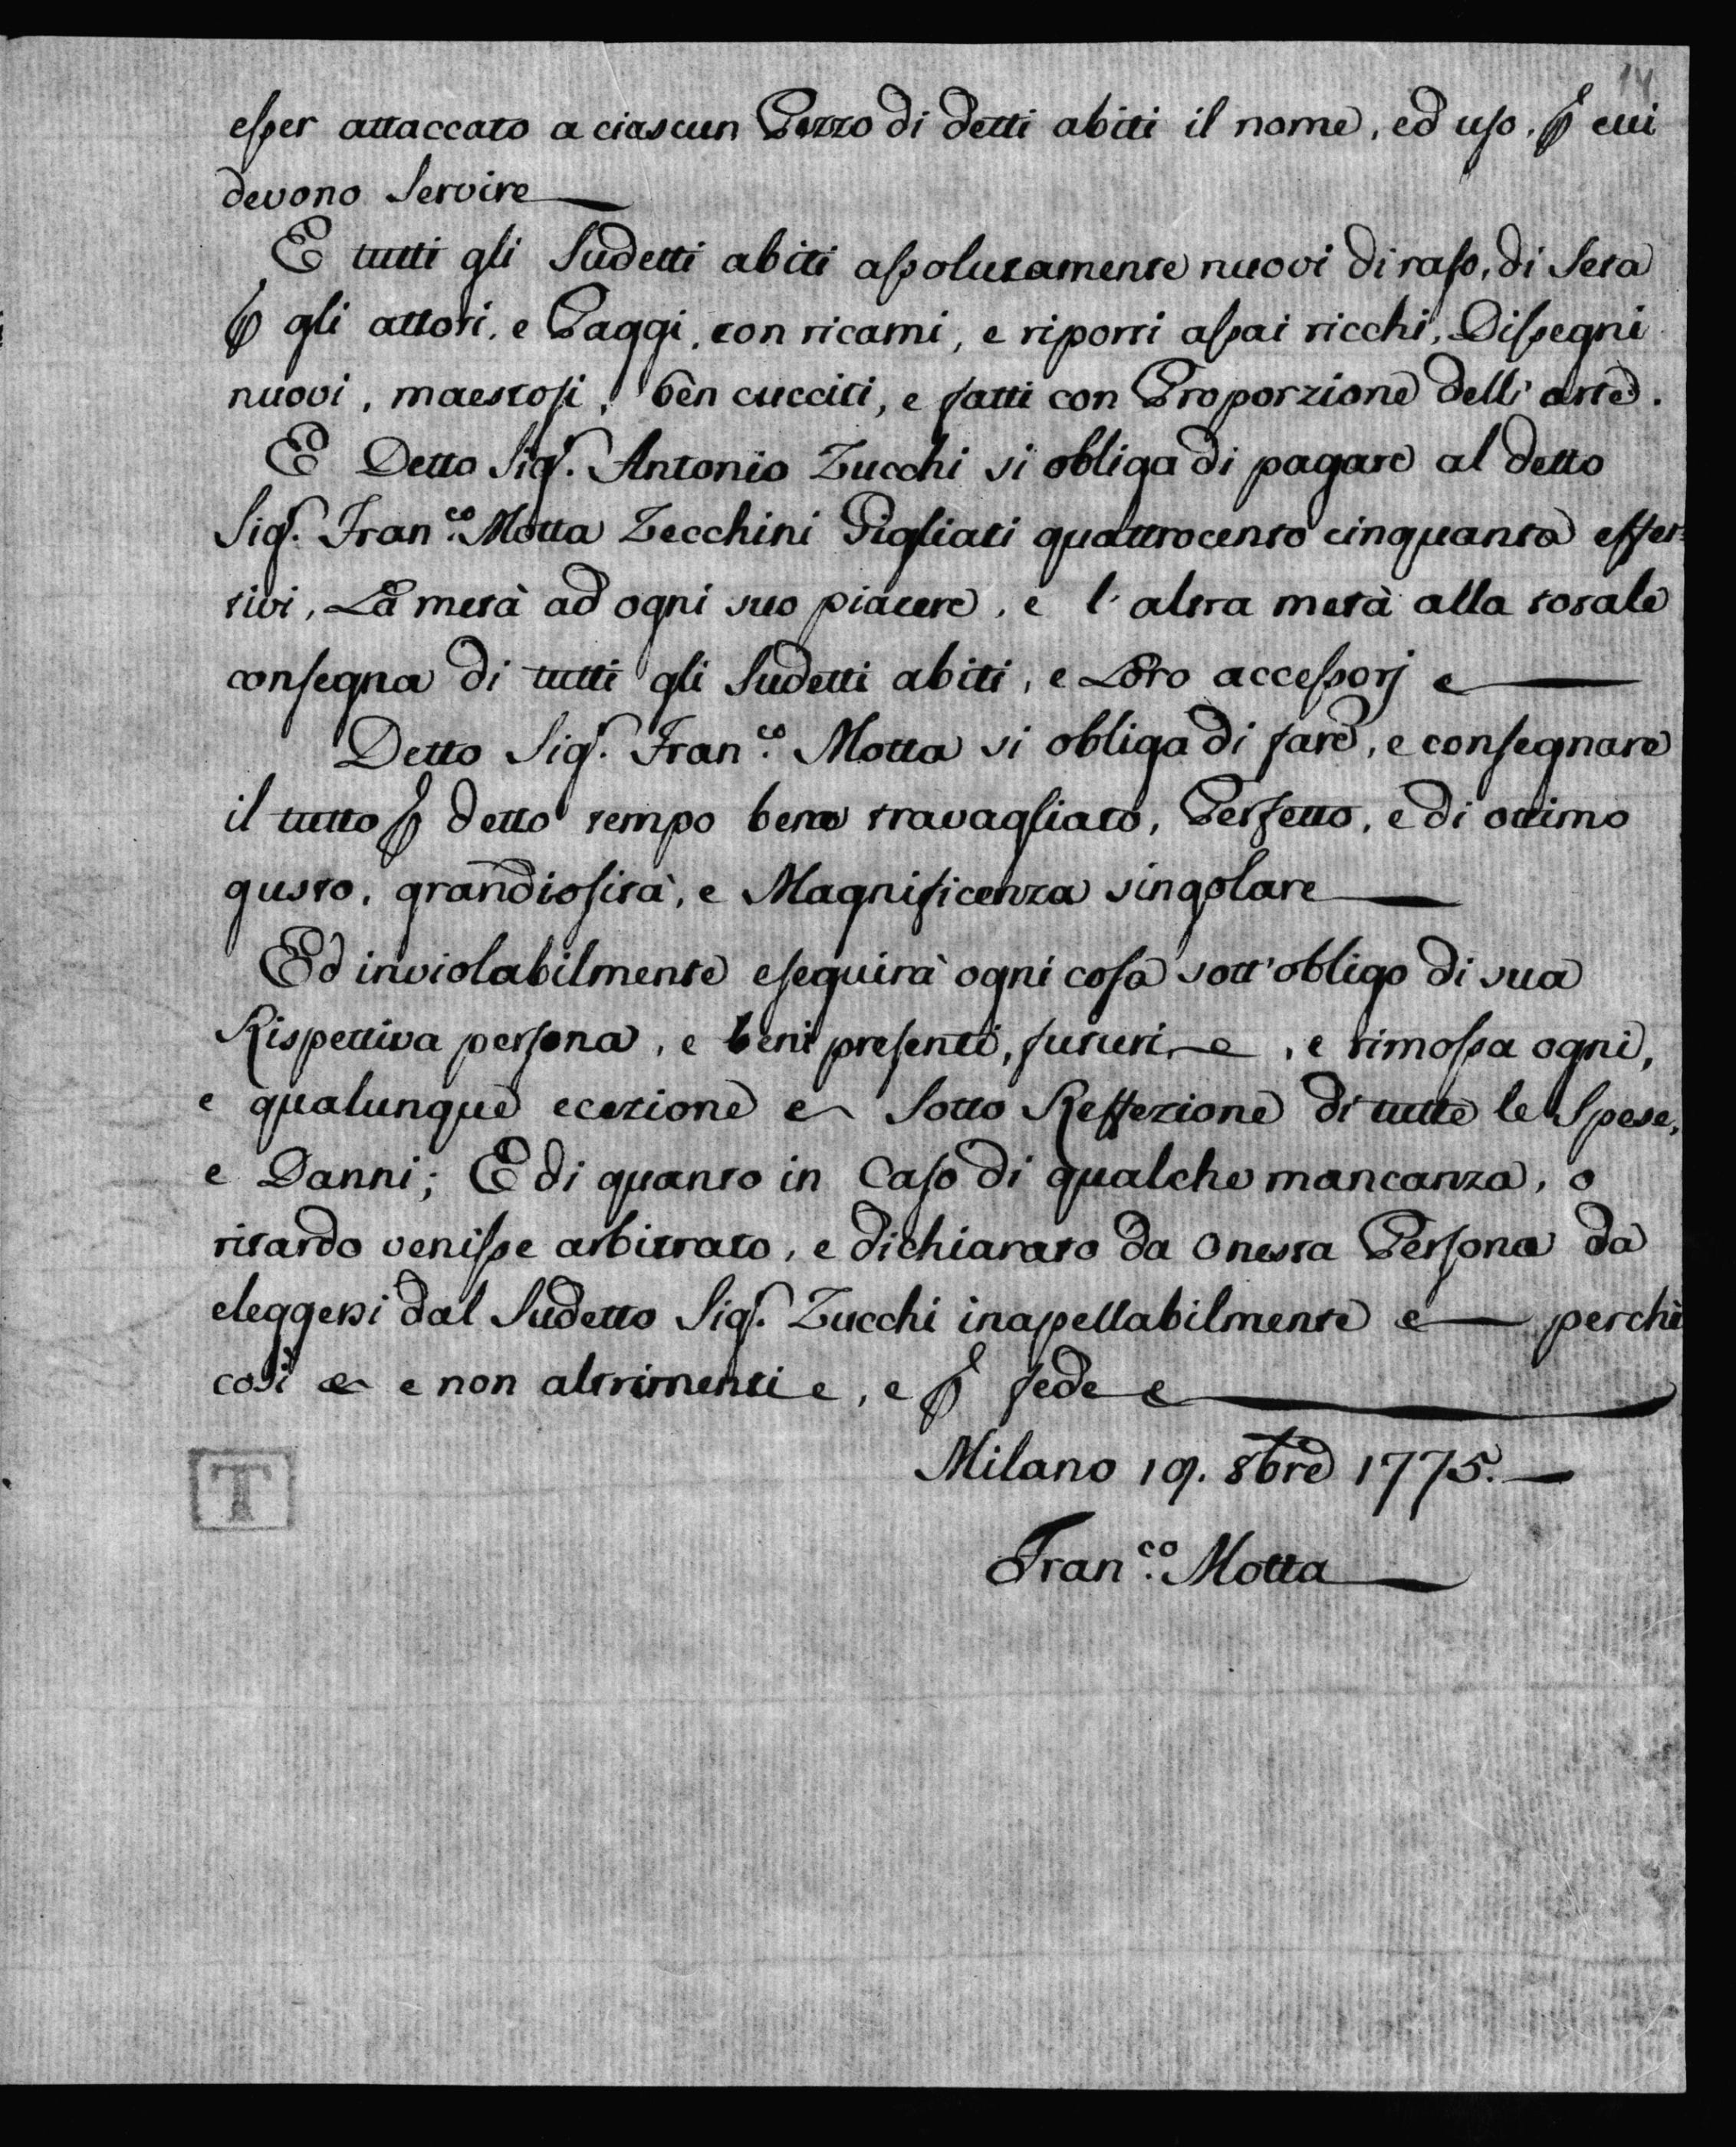 14
esser attaccato a ciascun Pezzo di detti abiti il nome, ed uso, ꝑ cui
devono servire
E tutti gli sudetti abiti assolutamente nuovi di raso, di seta
ꝑ gli attori, e Paggi, con ricami, e riporti assai ricchi, Dissegni
nuovi, maestosi, bèn cucciti, e fatti con Proporzione dell'arte.
E Detto Sigr. Antonio Zucchi si obliga di pagare al detto
Sigr. Fran.co Motta Zecchini Gigliati quattrocento cinquanta effet=
tivi, La metà ad ogni suo piacere, e l'altra metà alla totale
consegna di tutti gli sudetti abiti, e Loro accessorj e
Detto Sigr. Fran.co Motta si obliga di fare, e consegnare
il tutto ꝑ detto tempo bene travagliato, Perfetto, e di ottimo
gusto, grandiosità, e Magnificenza singolare
Ed inviolabilmente eseguirà ogni cosa sott'obligo di sua
Rispettiva persona, e beni presenti, futuri, e, e rimossa ogni,
e qualunque ecezione e sotto Reffezione di tutte le Spese,
e Danni; E di quanto in Caso di qualche mancanza, o
ritardo venisse arbitrato, e dichiarato da Onesta Persona da
eleggersi dal Sudetto Sigr. Zucchi inapellabilmente e perchè
così e e non altrimenti e, e ꝑ fede e
Milano 19. 8bre 1775.
Fran.co Motta
T